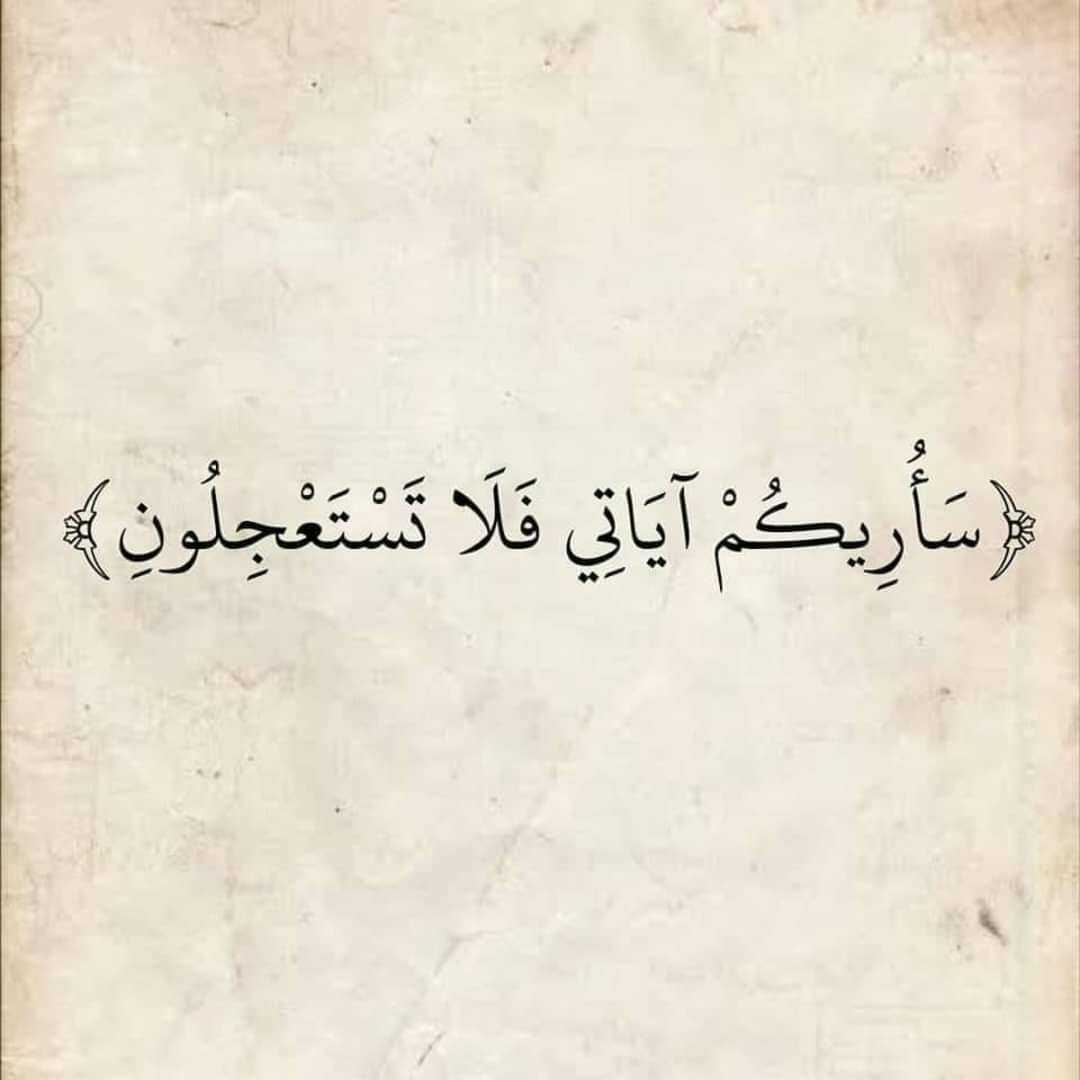 ﴿سَأُرِيكُمْ آيَاتِي فَلَا تَسْتَعْجِلُونِ﴾